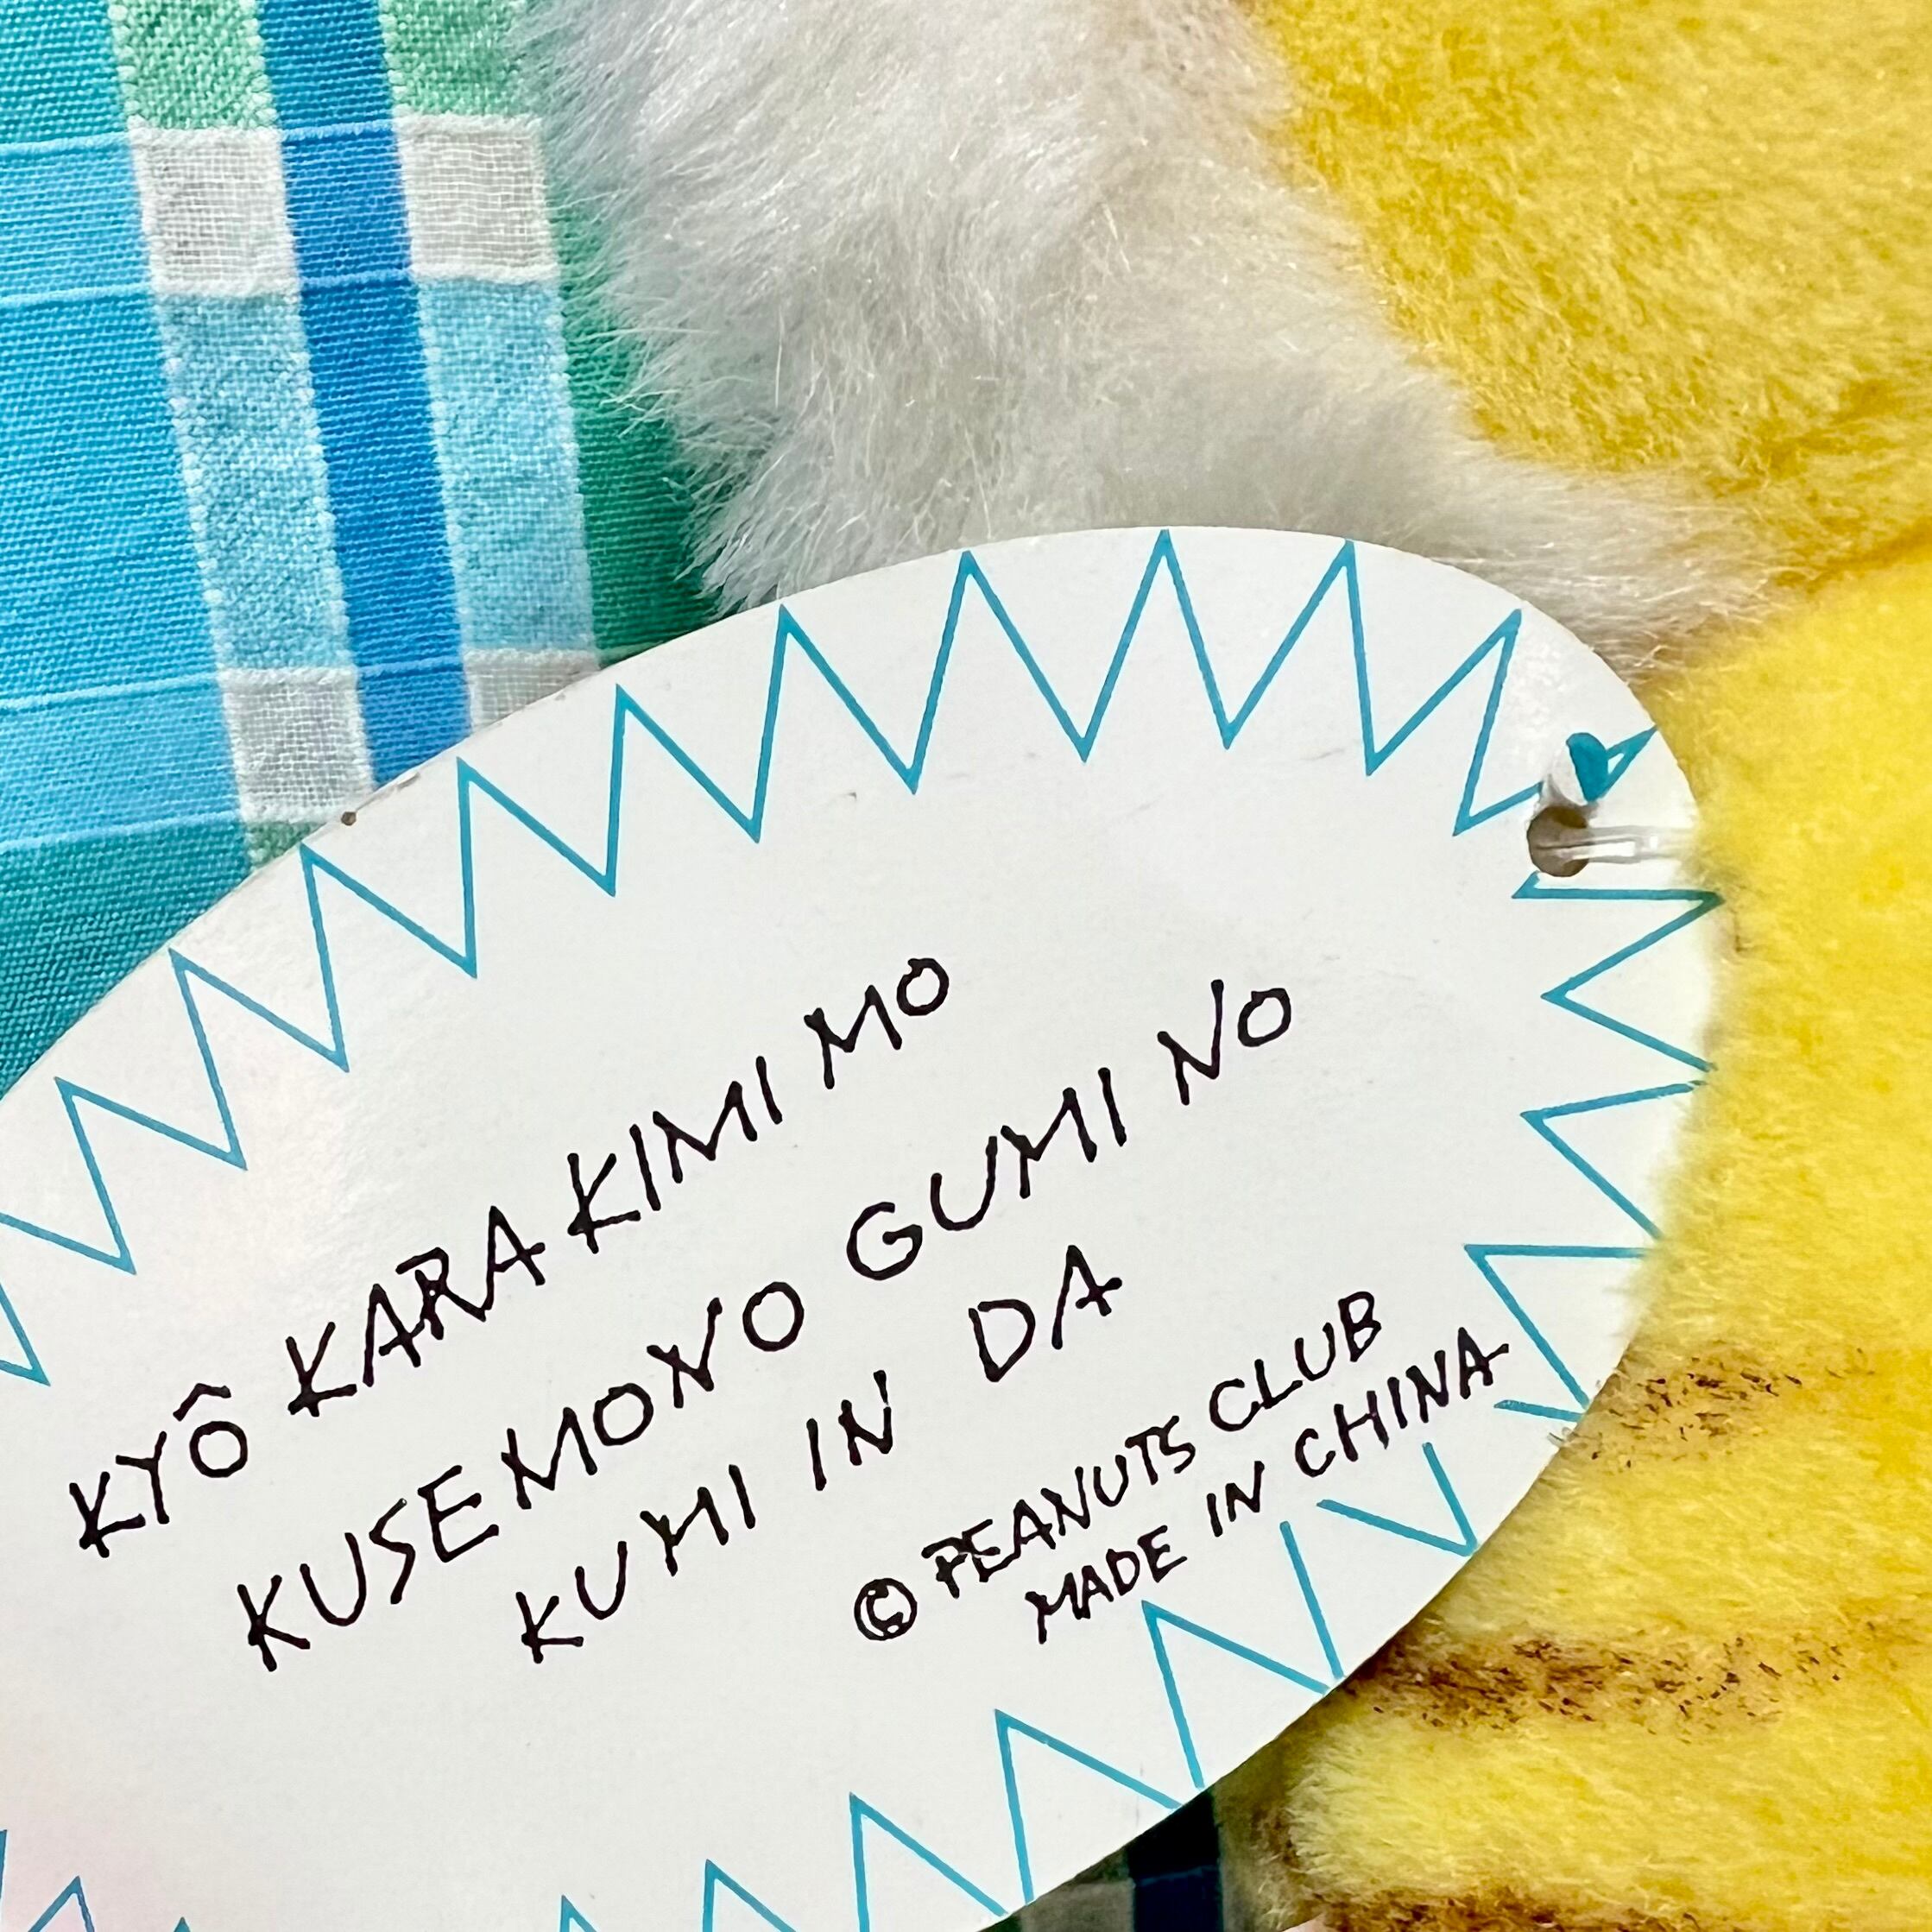 KYÔ KARA KIMI MO
KUSEMONO GUMI NO
KUMI IN DA
© PEANUTS CLUB
MADE IN CHINA